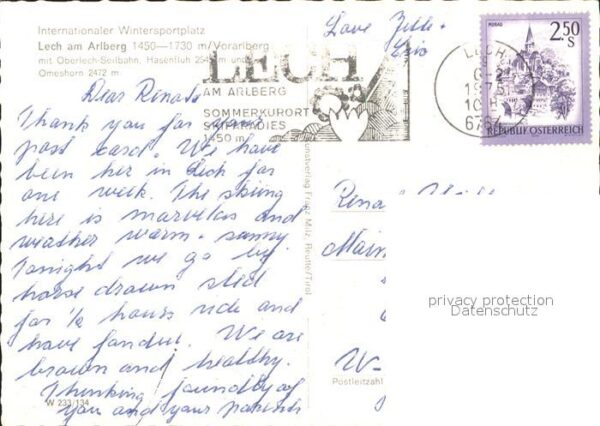 Internationaler Wintersportplatz
Lech am Arlberg 1450—1730 m/Vorarlberg
mit Oberlech-Seilbahn, Hasenfluh 254 m und
Omeshorn 2472 m
Dear Renata
Thank you for your
post card. We have
been her in Lech for
one week. The skiing
here is marvelus and
weather warm + sunny.
Tonight we go by
horse drawn sled
for ½ hours ride and
have fandue. We are
brown and healthy.
Thinking foundly of
you and your parents
Love
W 233/134
LECH
AM ARLBERG
SOMMERKURORT
SKIPARADIES
1450 m
LECH
10
2.50
S
REPUBLIK ÖSTERREICH
Kunstverlag Franz Milz, Reutte/Tirol
Rena
Main
W
Postleitzahl
privacy protection
Datenschutz